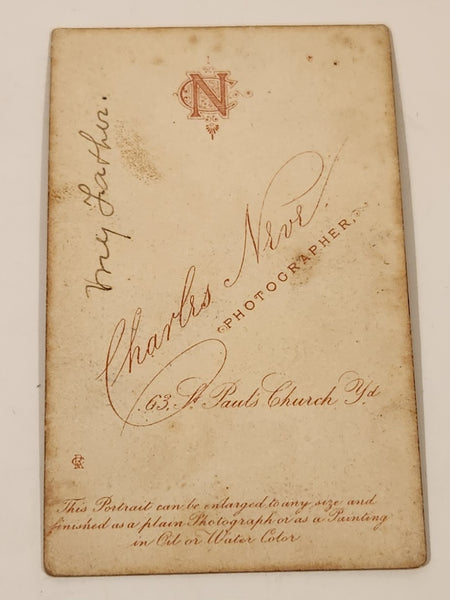 CN
My Father.
Charles Neve.
PHOTOGRAPHER,
63, St Paul's Church Yd
This Portrait can be enlarged to any size and
finished as a plain Photograph or as a Painting
in Oil or Water Color